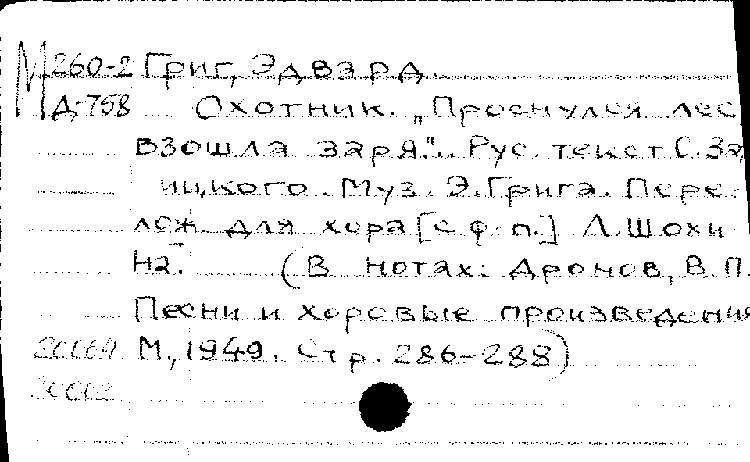 М 260-2 Григ, Эдвард
Д-758 Охотник. „Проснулся лес
взошла заря.“ Рус. текст С. За
ицкого. Муз. Э. Грига. Пере-
лож. для хора [с ф-п.] Л. Шохи
на. (В нотах: Дронов, В.П.
Песни и хоровые произведения
М., 1949. Стр. 286-288)